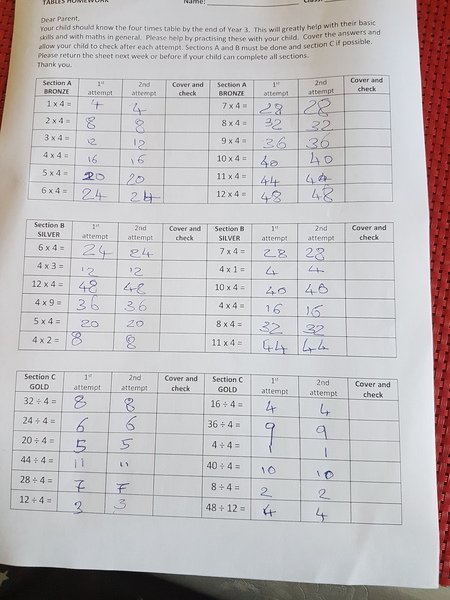 TABLES HOMEWORK Name:
Dear Parent,
Your child should know the four times table by the end of Year 3. This will greatly help with their basic
skills and with maths in general. Please help by practising these with your child. Cover the answers and
allow your child to check after each attempt. Sections A and B must be done and section C if possible.
Please return the sheet next week or before if your child can complete all sections.
Thank you.
Section A BRONZE 1st attempt 2nd attempt Cover and check Section A BRONZE 1st attempt 2nd attempt Cover and check
1 x 4 = 4 4 7 x 4 = 28 28
2 x 4 = 8 8 8 x 4 = 32 32
3 x 4 = 12 12 9 x 4 = 36 36
4 x 4 = 16 16 10 x 4 = 40 40
5 x 4 = 20 20 11 x 4 = 44 44
6 x 4 = 24 24 12 x 4 = 48 48
Section B SILVER 1st attempt 2nd attempt Cover and check Section B SILVER 1st attempt 2nd attempt Cover and check
6 x 4 = 24 24 7 x 4 = 28 28
4 x 3 = 12 12 4 x 1 = 4 4
12 x 4 = 48 48 10 x 4 = 40 40
4 x 9 = 36 36 4 x 4 = 16 16
5 x 4 = 20 20 8 x 4 = 32 32
4 x 2 = 8 8 11 x 4 = 44 44
Section C GOLD 1st attempt 2nd attempt Cover and check Section C GOLD 1st attempt 2nd attempt Cover and check
32 ÷ 4 = 8 8 16 ÷ 4 = 4 4
24 ÷ 4 = 6 6 36 ÷ 4 = 9 9
20 ÷ 4 = 5 5 4 ÷ 4 = 1 1
44 ÷ 4 = 11 11 40 ÷ 4 = 10 10
28 ÷ 4 = 7 7 8 ÷ 4 = 2 2
12 ÷ 4 = 3 3 48 ÷ 12 = 4 4